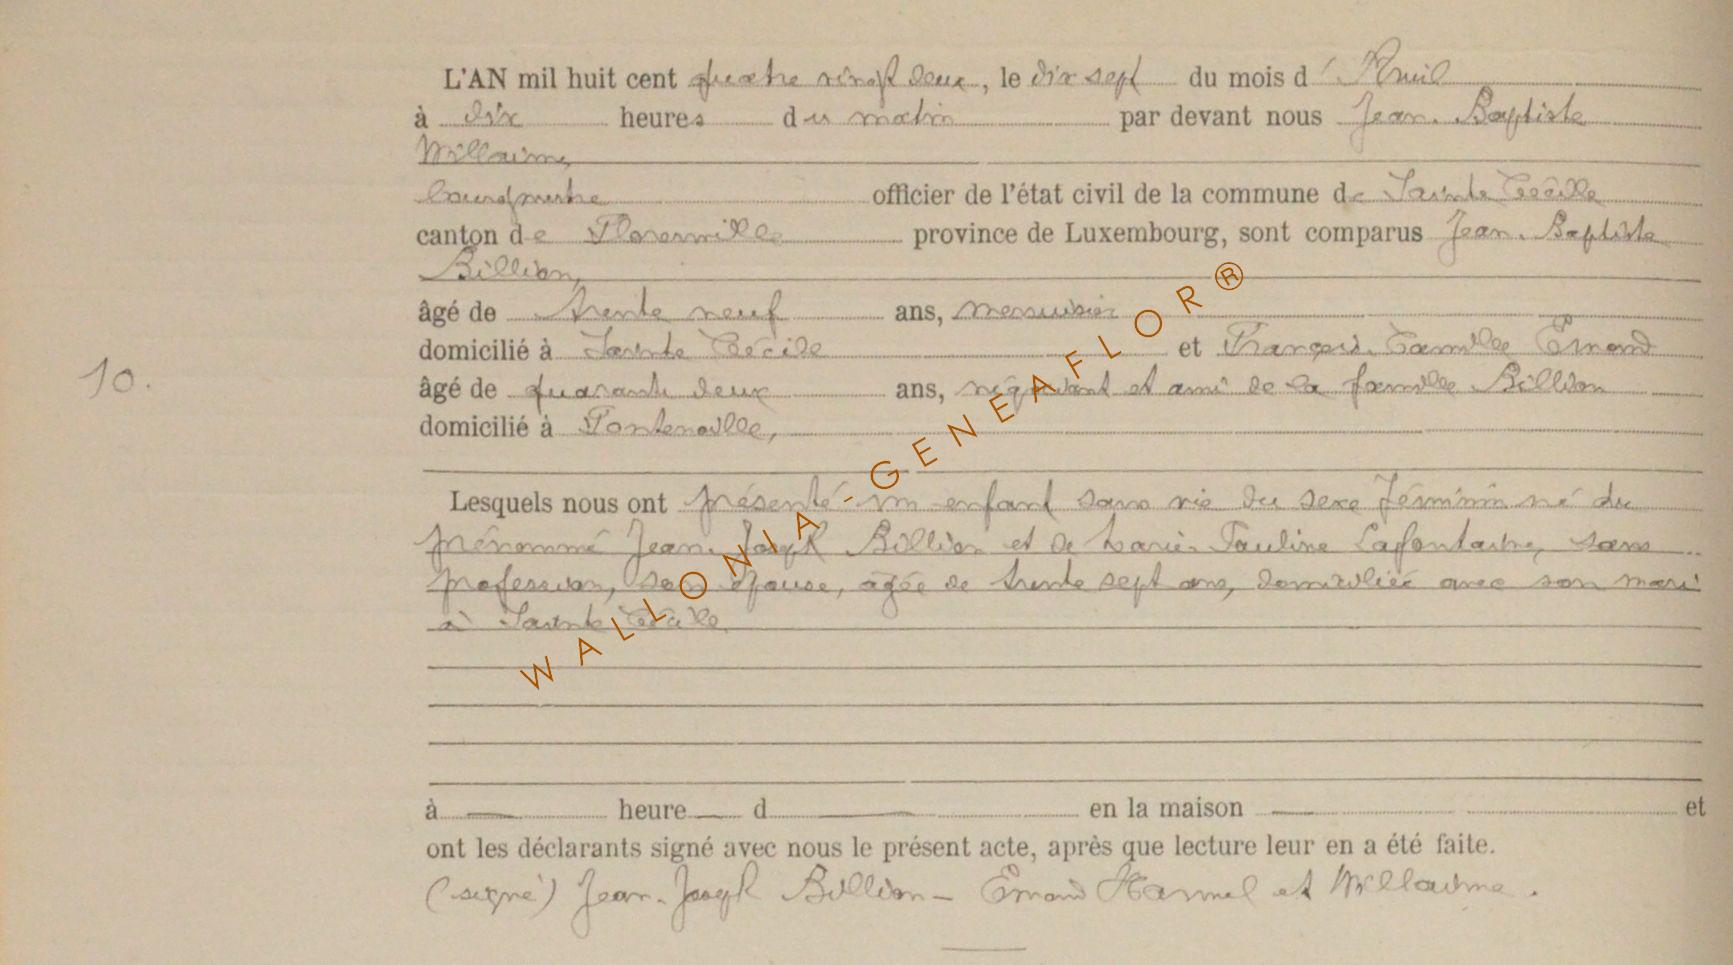 L'AN mil huit cent quatre vingt deux, le dix sept du mois d'Avril
à dix heures du matin par devant nous Jean-Baptiste
Willaime,
bourgmestre officier de l'état civil de la commune de Sainte Cécile
canton de Florenville province de Luxembourg, sont comparus Jean-Baptiste
Billion,
âgé de trente neuf ans, menuisier
domicilié à Sainte Cécile et François-Camille Emond
10.
âgé de quarante deux ans, négociant et ami de la famille Billion
domicilié à Fontenoille,
Lesquels nous ont présenté un enfant sans vie du sexe féminin né du
prénommé Jean-Joseph Billion et de Marie-Pauline Lafontaine, sans
profession, son épouse, âgée de trente sept ans, domiciliée avec son mari
à Sainte Cécile
à heure d en la maison et
ont les déclarants signé avec nous le présent acte, après que lecture leur en a été faite.
(signé) Jean-Joseph Billion - Emond Hamel et Willaime.
WALLONIA-GENEAFLOR®